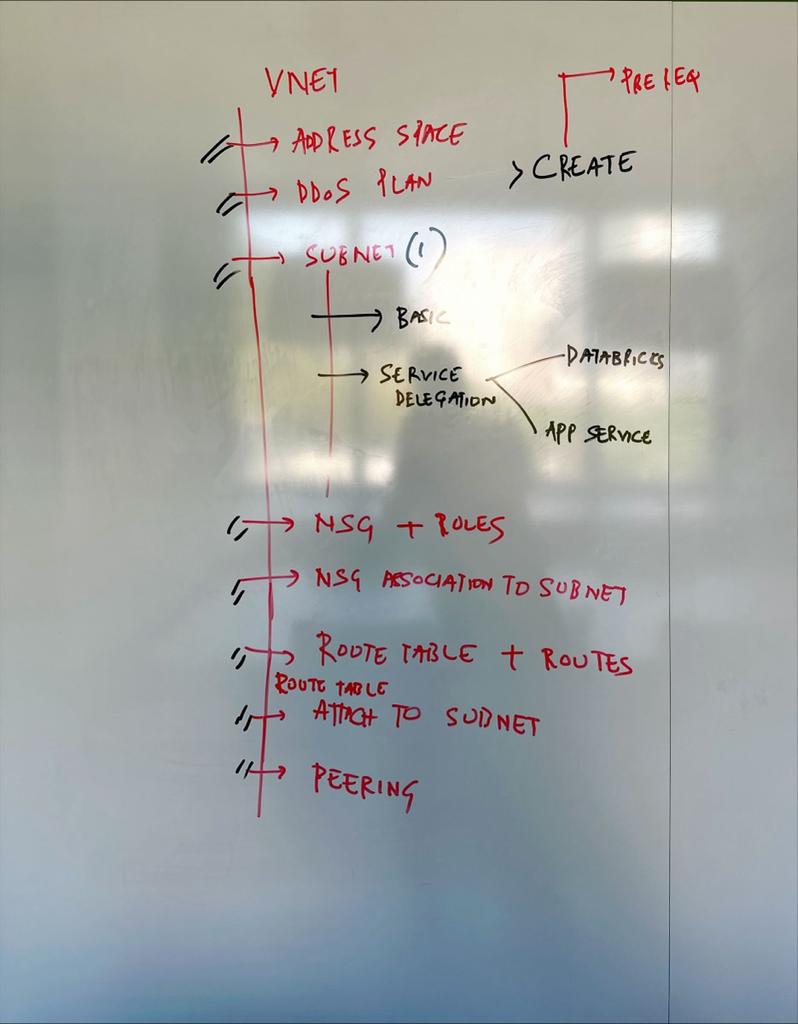 VNET
PRE REQ
ADDRESS SPACE
> CREATE
DDoS PLAN
SUBNET (1)
BASIC
SERVICE
DELEGATION
DATABRICKS
APP SERVICE
NSG + ROLES
NSG ASSOCIATION TO SUBNET
ROUTE TABLE + ROUTES
ROUTE TABLE
ATTACH TO SUBNET
PEERING